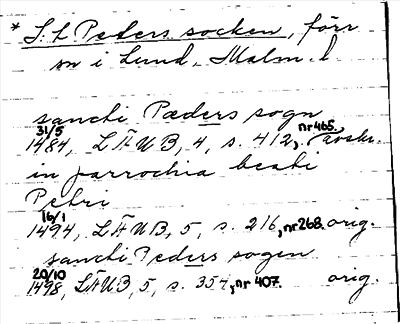 * S:t Peders socken, förr
sn i Lund, Malm. l.
sancti Pæders sogn
31/5 nr 465,
1484, LÄUB, 4, s. 412, avskr.
in parrochia beati
Petri
16/1
1494, LÄUB, 5, s. 216, nr 268. orig.
sancti Peders sogen
20/10
1498, LÄUB, 5, s. 354, nr 407. orig.